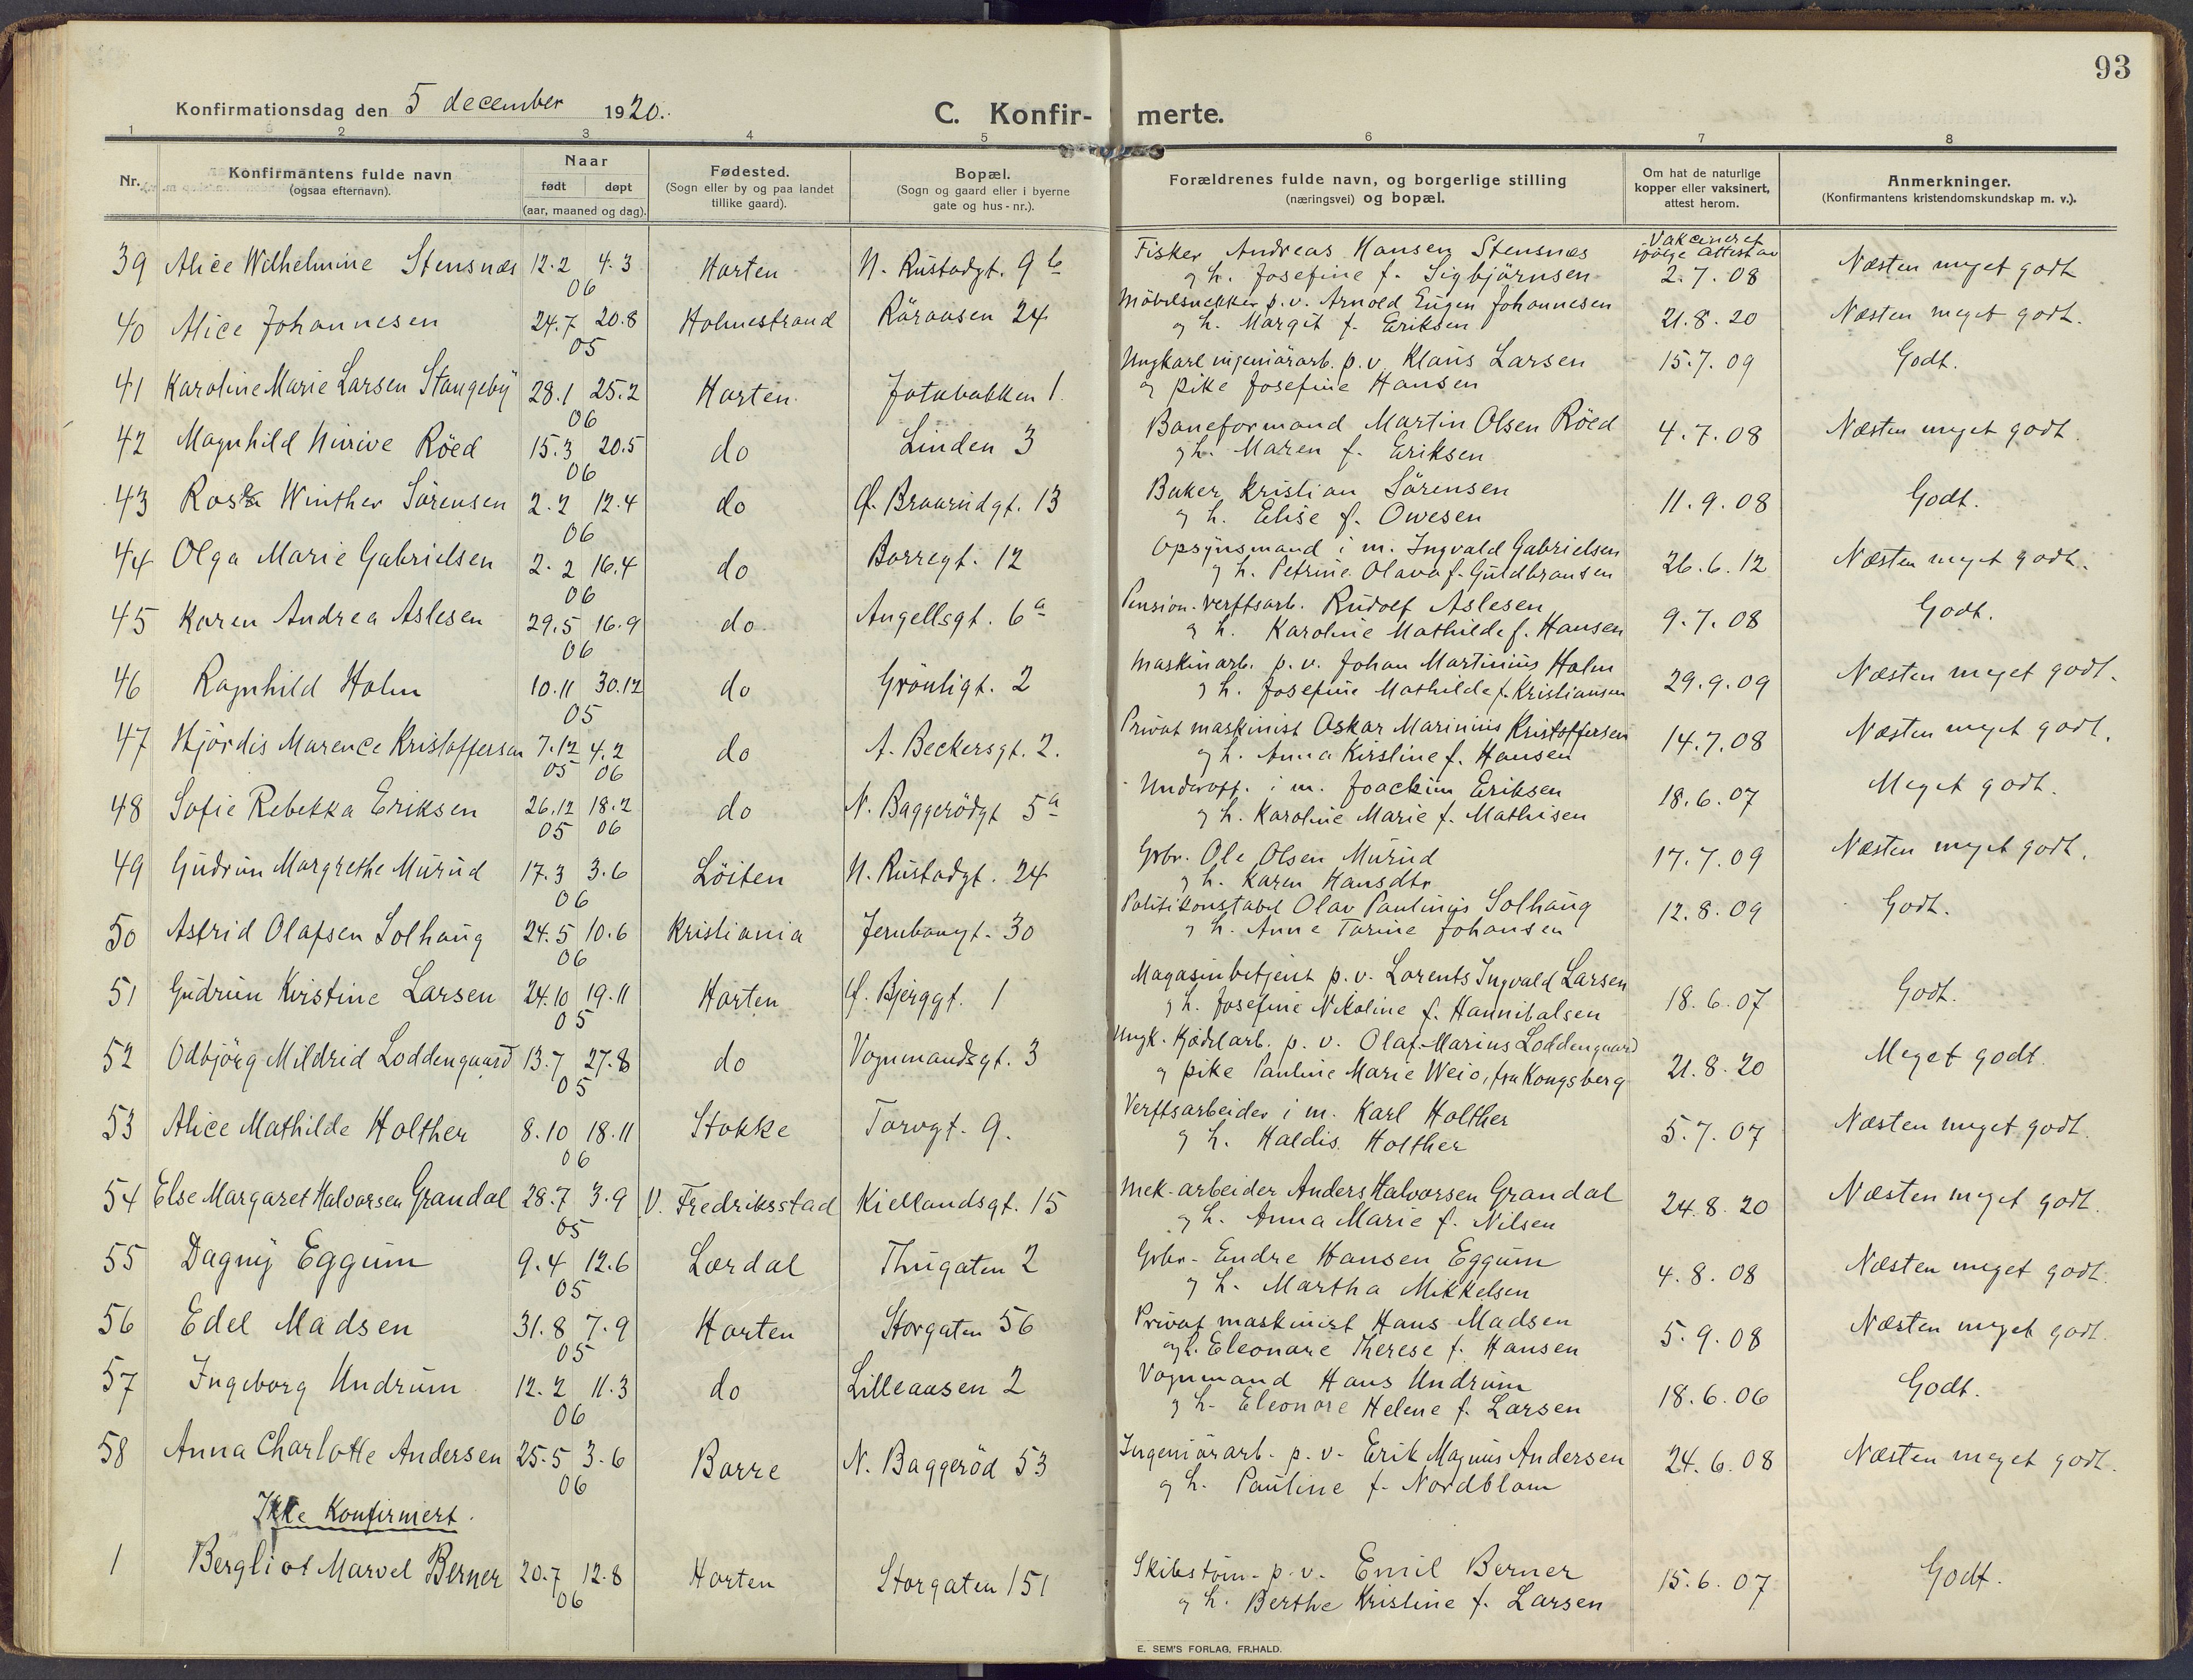 93
Konfirmationsdag den 5 december 1920.
C. Konfir- merte.
1 2 3 4 5 6 7 8
Nr.
Konfirmantens fulde navn
(ogsaa efternavn).
Naar
født døpt
(aar, maaned og dag).
Fødested.
(Sogn eller by og paa landet
tillike gaard).
Bopæl.
(Sogn og gaard eller i byerne
gate og hus-nr.).
Forældrenes fulde navn, og borgerlige stilling
(næringsvei) og bopæl.
Om hat de naturlige
kopper eller vaksinert,
attest herom.
Anmerkninger.
(Konfirmantens kristendomskundskap m. v.).
39 Alice Wilhelmine Stensnæs 12.2 4.3 Horten N. Rustadgt. 9b
06
Fisker Andreas Hansen Stensnæs
og h. Josefine f. Sigbjörnsen
Vakcineret
ifölge Attest av
2.7.08 Næsten meget godt
40 Alice Johannesen 24.7 20.8 Holmestrand Röraasen 24
05
Möbelsnekker p.v. Arnold Eugen Johannesen
og h. Margit f. Eriksen
21.8.20 Næsten meget godt.
41 Karoline Marie Larsen Stangeby 28.1 25.2 Horten Fatabakken 1.
06
Ungkarl ingeniörarb. p.v. Klaus Larsen
og pike Josefine Hansen
15.7.09 Godt.
42 Magnhild Röed 15.3 20.5 do Linden 3
06
Baneformand Martin Olsen Röed
og h. Maren f. Eriksen
4.7.08 Næsten meget godt.
43 Winther Sörensen 2.2 12.4 do Ø. Braarudgt. 13
06
Baker Kristian Sörensen
og h. Elise f. Owesen
11.9.08 Godt.
44 Olga Marie Gabrielsen 2.2 16.4 do Borregt. 12
06
Opsynsmand i m. Ingvald Gabrielsen
og h. Petrine Olava f. Guldbransen
26.6.12 Næsten meget godt.
45 Karen Andrea Aslesen 29.5 16.9 do Angellsgt. 6a
06
Pension. verftsarb. Rudolf Aslesen
og h. Karoline Mathilde f. Hansen
9.7.08 Godt.
46 Ragnhild Holm 10.11 30.12 do Grönligt. 2
05
Maskinarb. p.v. Johan Martinius Holm
og h. Josefine Mathilde f. Kristiansen
29.9.09 Næsten meget godt.
47 Hjördis Marence Kristoffersen 7.12 4.2 do A. Beckersgt. 2.
05 06
Privat maskinist Oskar Marinius Kristoffersen
og h. Anna Kirstine f. Hansen
14.7.08 Næsten meget godt.
48 Sofie Rebekka Eriksen 26.12 18.2 do N. Baggerödgt 5a
05 06
Underoff. i m. Joachim Eriksen
og h. Karoline Marie f. Mathisen
18.6.07 Meget godt.
49 Gudrun Margrethe Murud 17.3 3.6 Löiten N. Rustadgt. 24
06
Gbr. Ole Olsen Murud
og h. Karen Hansdtr
17.7.09 Næsten meget godt.
50 Astrid Olafsen Solhaug 24.5 10.6 Kristiania Jernbanegt. 30
06
Politikonstabel Olav Paulinius Solhaug
og h. Anne Torine Johansen
12.8.09 Godt.
51 Gudrun Kristine Larsen 24.10 19.11 Horten Ø. Bjerggt. 1
05
Magasinbetjent p.v. Lorents Ingvald Larsen
og h. Josefine Nikoline f. Hannibalsen
18.6.07 Godt.
52 Odbjörg Mildrid Loddengaard 13.7 27.8 do Vognmandsgt. 3
05
Ungk. Kjedelarb. p.v. Olaf Marius Loddengaard
og pike Pauline Marie Weio, fra Kongsberg
21.8.20 Meget godt
53 Alice Mathilde Holther 8.10 18.11 Stokke Torvgt. 9.
06
Verftsarbeider i m. Karl Holther
og h. Haldis Holther
5.7.07 Næsten meget godt.
54 Else Margaret Halvorsen Grandal 28.7 3.9 V. Fredriksstad Kiellandsgt. 15
05
Mek. arbeider Anders Halvorsen Grandal
og h. Anna Marie f. Nilsen
24.8.20 Næsten meget godt.
55 Dagny Eggum 9.4 12.6 Lærdal Thugaten 2
05
Gbr. Endre Hansen Eggum
og h. Martha Mikkelsen
4.8.08 Næsten meget godt.
56 Edel Madsen 31.8 7.9 Horten Storgaten 56
05
Privat maskinist Hans Madsen
og h. Eleonore Therese f. Hansen
5.9.08 Næsten meget godt.
57 Ingeborg Undrum 12.2 11.3 do Lilleaasen 2
06
Vognmand Hans Undrum
og h. Eleonore Helene f. Larsen
18.6.06 Godt.
58 Anna Charlotte Andersen 25.5 3.6 Borre N. Baggeröd 53
06
Ingeniörarb. p.v. Erik Magnus Andersen
og h. Pauline f. Nordblom
24.6.08 Næsten meget godt.
Ikke Konfirmert.
1 Bergliot Marvel Berner 20.7 12.8 Horten Storgaten 151
06
Skibstöm. p.v. Emil Berner
og h. Berthe Kristine f. Larsen
15.6.07 Godt.
E. SEM'S FORLAG, FR.HALD.